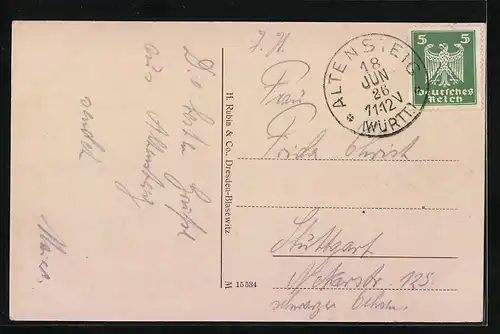 Die besten Grüße
aus Altensteig
sendet
H. Rubin & Co., Dresden-Blasewitz
M 15534
ALTENSTEIG
18
JUN
26
11-12V
(WÜRTT.)
5 5
Deutsches
Reich
Frau
Frida
Stuttgart
Nekarstr. 125.
schwarzer Ochsen